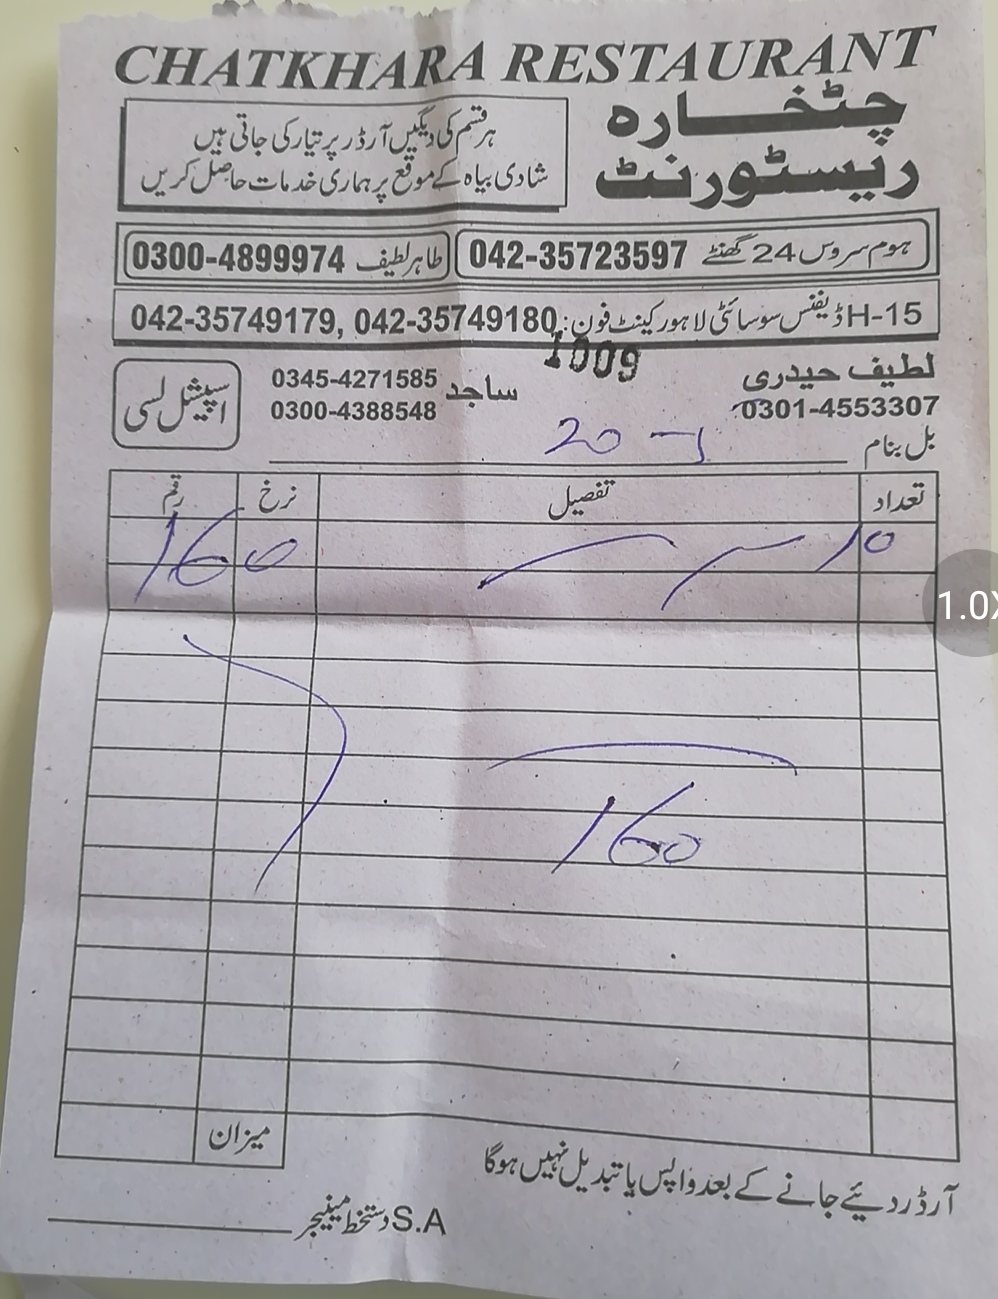 CHATKHARA RESTAURANT
چٹخارہ
ریسٹورنٹ
ہر قسم کی دیگیں آرڈر پر تیار کی جاتی ہیں
شادی بیاہ کے موقع پر ہماری خدمات حاصل کریں
ہوم سروس 24 گھنٹے 042-35723597
طاہر لطیف 0300-4899974
H-15 ڈیفنس سوسائٹی لاہور کینٹ فون: 042-35749179, 042-35749180
1009
لطیف حیدری
0301-4553307
ساجد
0345-4271585
0300-4388548
اسپیشل لسی
بل بنام
20
تعداد تفصیل نرخ رقم
10 160
160
میزان
آرڈر دئیے جانے کے بعد واپس یا تبدیل نہیں ہوگا
S.A دستخط مینیجر
1.0X